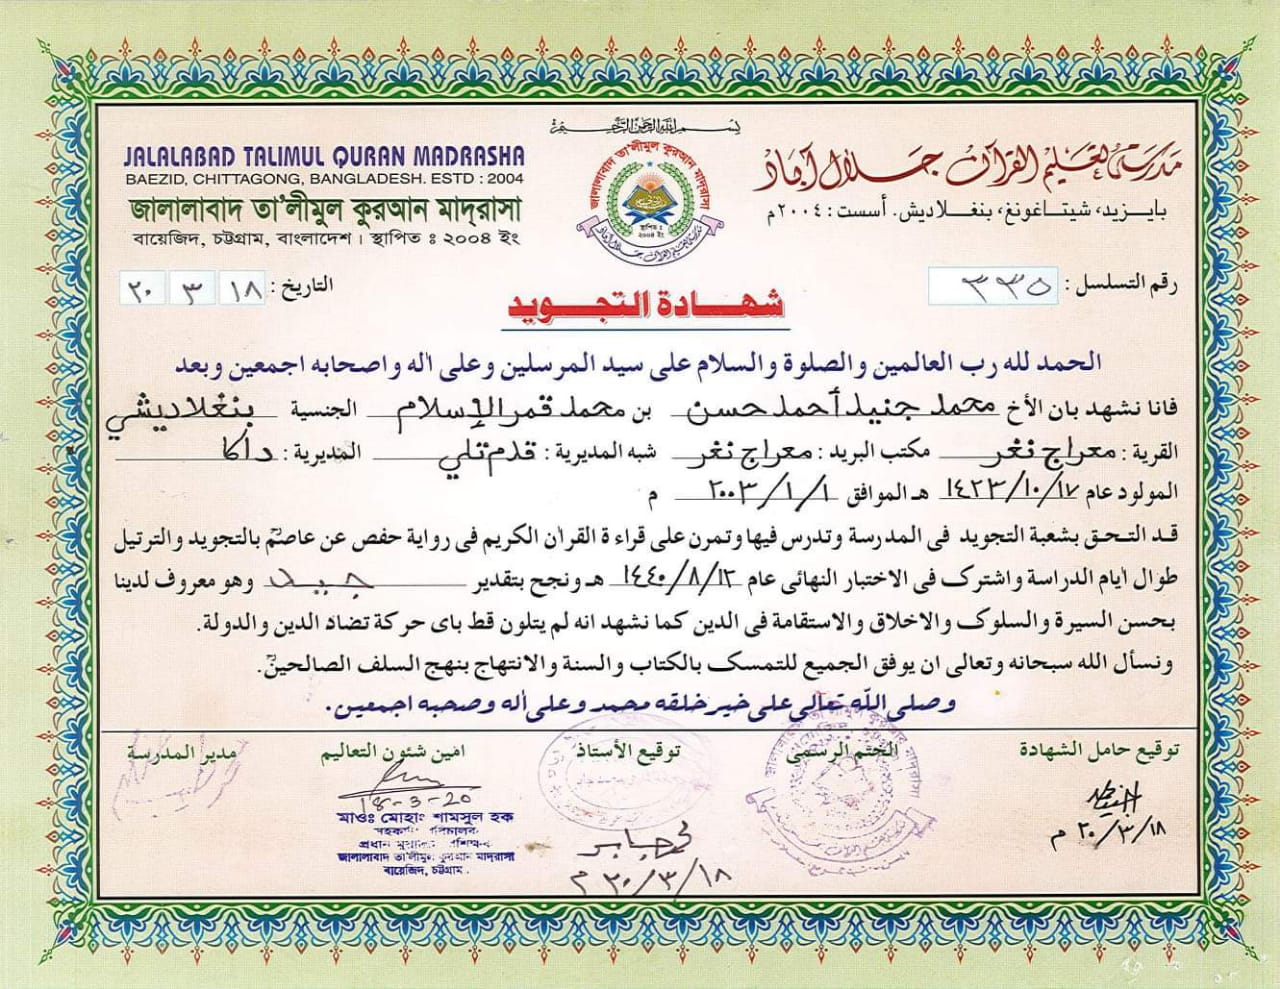 بسم الله الرحمن الرحيم
JALALABAD TALIMUL QURAN MADRASHA
BAEZID, CHITTAGONG, BANGLADESH. ESTD : 2004
জালালাবাদ তা'লীমুল কুরআন মাদ্‌রাসা
বায়েজিদ, চট্টগ্রাম, বাংলাদেশ। স্থাপিত ঃ ২০০৪ ইং
জালালাবাদ তা'লীমুল কুরআন মাদ্‌রাসা
স্থাপিত ঃ
২০০৪ ইং
مدرسة تعليم القرآن جلال آباد
مدرسة تعليم القرآن جلال آباد
بايزيد، شيتاغونغ، بنغلاديش. أسست : ٢٠٠٤م
رقم التسلسل : ٣٣٥
التاريخ : ١٨ ٣ ٢٠
شهادة التجويد
الحمد لله رب العالمين والصلوة والسلام على سيد المرسلين وعلى اله واصحابه اجمعين وبعد
فانا نشهد بان الأخ محمد جنيد أحمد حسن بن محمد قمر الإسلام الجنسية بنغلاديشي
القرية : معراج نغر مكتب البريد : معراج نغر شبه المديرية : قدم تلي المديرية : داكا
المولود عام ١٤٢٣/١٠/١٧ هـ الموافق ٢٠٠٣/١/١ م
قد التحق بشعبة التجويد فى المدرسة وتدرس فيها وتمرن على قراءة القران الكريم فى رواية حفص عن عاصم بالتجويد والترتيل
طوال ايام الدراسة واشترك فى الاختبار النهائى عام ١٤٤٠/٨/١٢ هـ ونجح بتقدير جيد وهو معروف لدينا
بحسن السيرة والسلوك والاخلاق والاستقامة فى الدين كما نشهد انه لم يتلون قط باى حركة تضاد الدين والدولة.
ونسأل الله سبحانه وتعالى ان يوفق الجميع للتمسك بالكتاب والسنة والانتهاج بنهج السلف الصالحين.
وصلى الله تعالى على خير خلقه محمد وعلى اله وصحبه اجمعين.
توقيع حامل الشهادة
الختم الرسمى
توقيع الأستاذ
امين شئون التعاليم
مدير المدرسة
٢٠/٣/١٨ م
٢٠/٣/١٨ م
18-3-20
মাওঃ মোহাঃ শামসুল হক
জালালাবাদ তা'লীমুল কুরআন মাদ্‌রাসা
বায়েজিদ, চট্টগ্রাম.